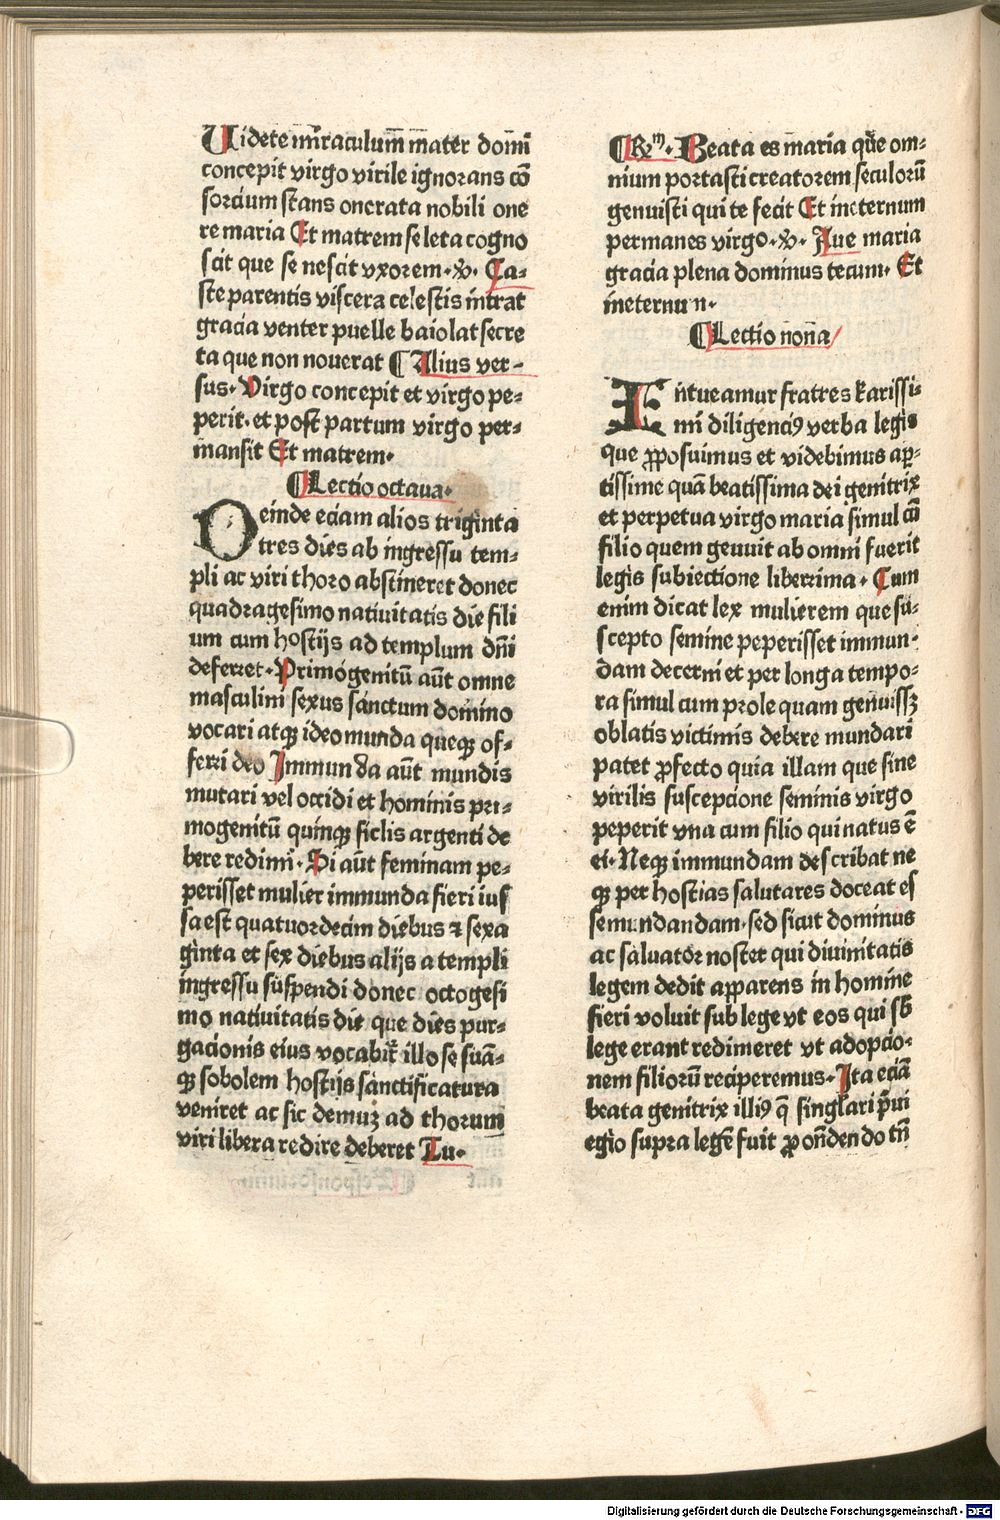 Uidete miraculum̄ mater domī
concepit virgo virile ignorans cō
sorcium stans onerata nobili one
re maria Et matrem se leta cogno
scit que se nescit vxorem·℣· Ca-
ste parentis viscera celestis intrat
gracia venter puelle baiolat secre
ta que non nouerat ¶ Alius ver-
sus· Virgo concepit et virgo pe-
perit· et post partum virgo per-
mansit Et matrem·
¶ Lectio octaua·
Deinde eciam alios triginta
tres dies ab ingressu tem-
pli ac viri thoro abstineret donec
quadragesimo nativitatis die fili
um cum hostijs ad templum dn̄i
deferret· Primogenitū aūt omne
masculini sexus sanctum domino
vocari atqꝫ ideo munda queqꝫ of-
ferri deo Immunda aūt mundis
mutari vel occidi et hominis pri-
mogenitū quinqꝫ siclis argenti de
bere redimi· Si aūt feminam pe-
perisset mulier immunda fieri ius
sa est quatuordecim diebus ⁊ sexa
ginta et sex diebus alijs a templi
ingressu suspendi donec octogesi
mo nativitatis die que dies pur-
gacionis eius vocabit̄ illo se suā-
qꝫ sobolem hostijs sanctificatura
veniret ac sic demuꝫ ad thorum
viri libera redire deberet Tu·
¶ R̶m· Beata es maria que om-
nium portasti creatorem seculorū
genuisti qui te fecit Et ineternum
permanes virgo·℣· Aue maria
gracia plena dominus tecum· Et
ineternu n·
¶ Lectio nona
Intueamur fratres karissi-
mi diligenciꝰ verba legis
que ꝓposuimus et videbimus ap-
tissime quā beatissima dei genitrix
et perpetua virgo maria simul cū
filio quem genuit ab omni fuerit
legis subiectione liberrima· Cum
enim dicat lex mulierem que su-
scepto semine peperisset immun-
dam decerni et per longa tempo-
ra simul cum prole quam genuissꝫ
oblatis victimis debere mundari
patet ꝓfecto quia illam que sine
virilis suscepcione seminis virgo
peperit vna cum filio qui natus ē
ei· Neqꝫ immundam describat ne
qꝫ per hostias salutares doceat es
se mundandam· sed sicut dominus
ac saluator noster qui diuinitatis
legem dedit apparens in homine
fieri voluit sub lege vt eos qui sb̄
lege erant redimeret vt adopcio-
nem filiorū reciperemus· Ita eciā
beata genitrix illiꝰ q̄ singlari p̄ui
egio supra legē fuit ꝓ on̄dendo tn̄
Digitalisierung gefördert durch die Deutsche Forschungsgemeinschaft - DFG